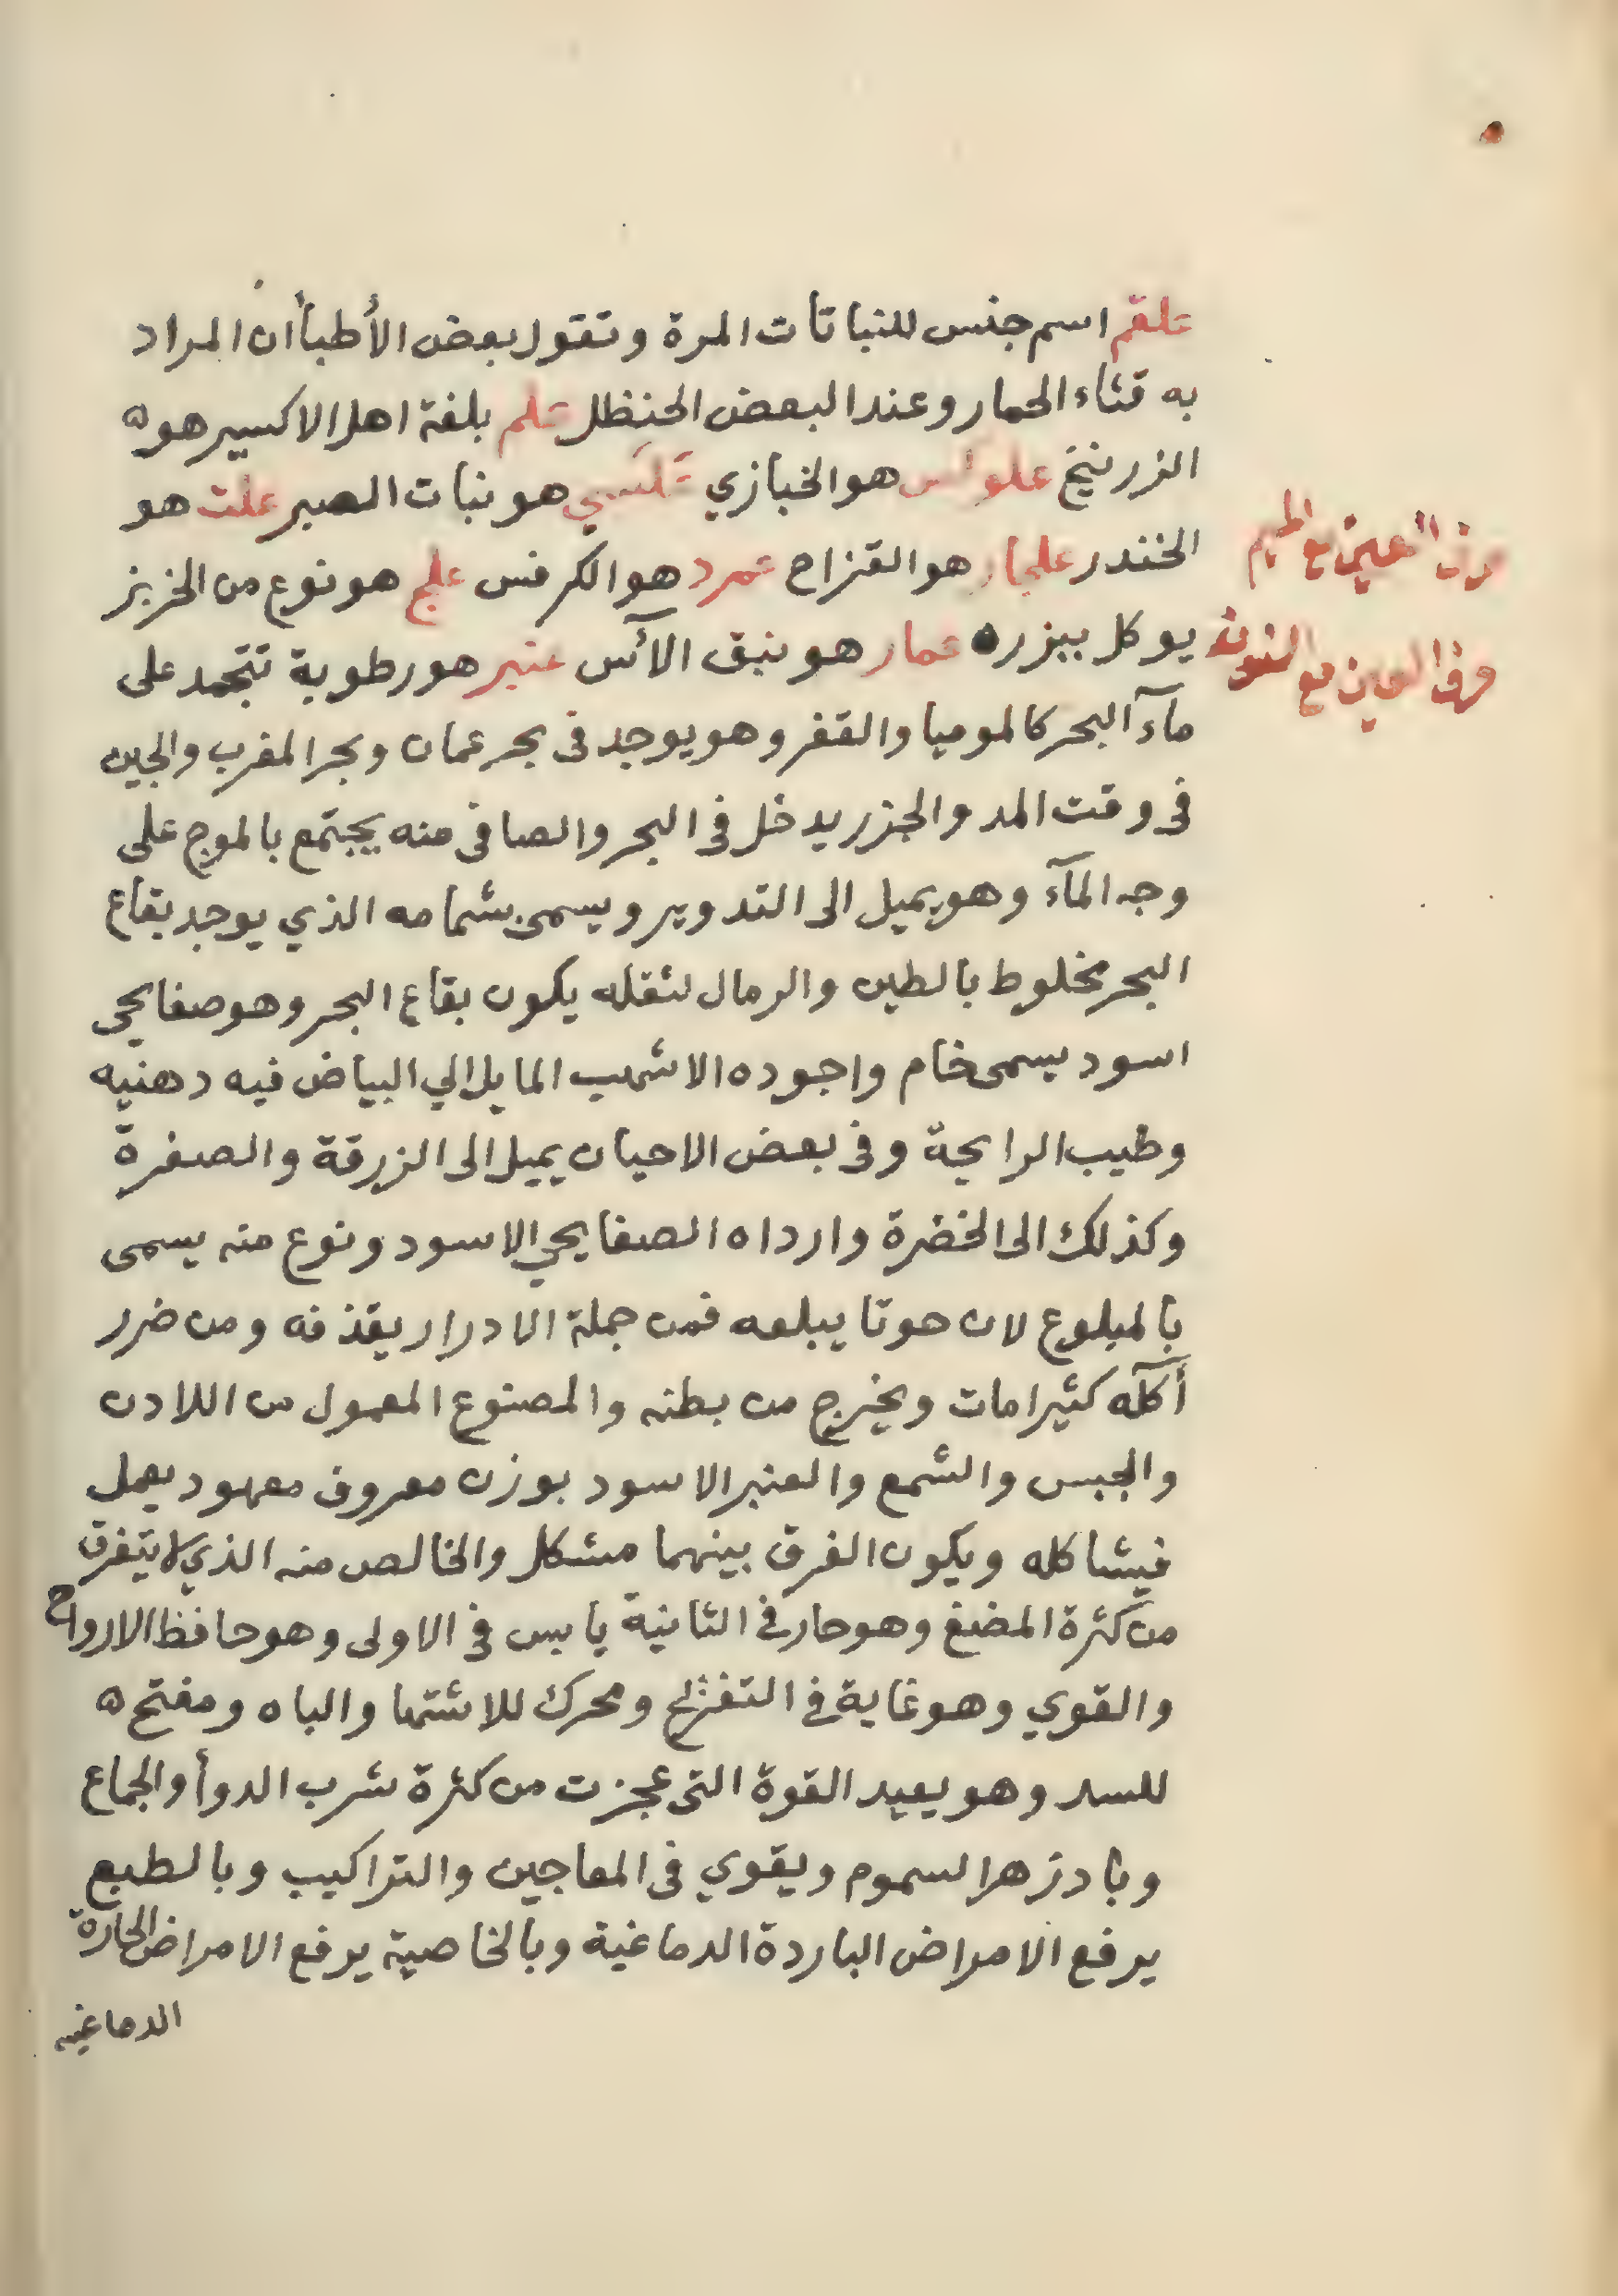 علقم اسم جنس للنباتات المرة وتقول بعض الأطبأ ان المراد
به قثاء الحمار وعند البعض الحنظل علم بلغة اهل الاكسير هو
الزرنيخ هو الخبازي علسي هو نبات الصبر علث هو
الخندر علجار هو القزاح عمرد هو الكرفس علج هو نوع من الخربز
حرف العين مع الميم
يوكل ببزره عمار هو نبق الآس عنبر هو رطوبة تتجمد على
حرف العين مع النون
مآء البحر كالموميا والقفر وهو يوجد فى بحر عمان وبحر المغرب والجين
فى وقت المد والجزر يدخل فى البحر والصافى منه يجتمع بالموج على
وجه المآء وهو يميل الى التدوير ويسمى بشمامه الذي يوجد بقاع
البحر مخلوط بالطين والرمال لثقله يكون بقاع البحر وهو صفايحي
اسود يسمى خام واجوده الاشهب المايل الي البياض فيه دهنيه
وطيب الرايحة وفى بعض الاحيان يميل الى الزرقة والصفرة
وكذلك الى الخضرة وارداه الصفايحي الاسود ونوع منه يسمى
بالمبلوع لان حوتا يبلعه فمن جملة الادرار يقذفه ومن ضرر
أكله كثيرا مات ويخرج من بطنه والمصنوع المعمول من اللادن
والجبس والشمع والعنبر الاسود بوزن معروف معهود يعمل
فيشاكله ويكون الفرق بينهما مشكل والخالص منه الذي لا يتفرق
من كثرة المضغ وهو حار فى الثانية يابس فى الاولى وهو حافظ الارواح
والقوي وهو غاية فى التفريح ومحرك للاشتها والباه ومفتح
للسدد وهو يعيد القوة التى عجزت من كثرة شرب الدوأ والجماع
وبادزهر السموم ويقوي فى المعاجين والتراكيب وبالطبع
يرفع الامراض الباردة الدماغية وبالخاصية يرفع الامراض الحارة
الدماغيه